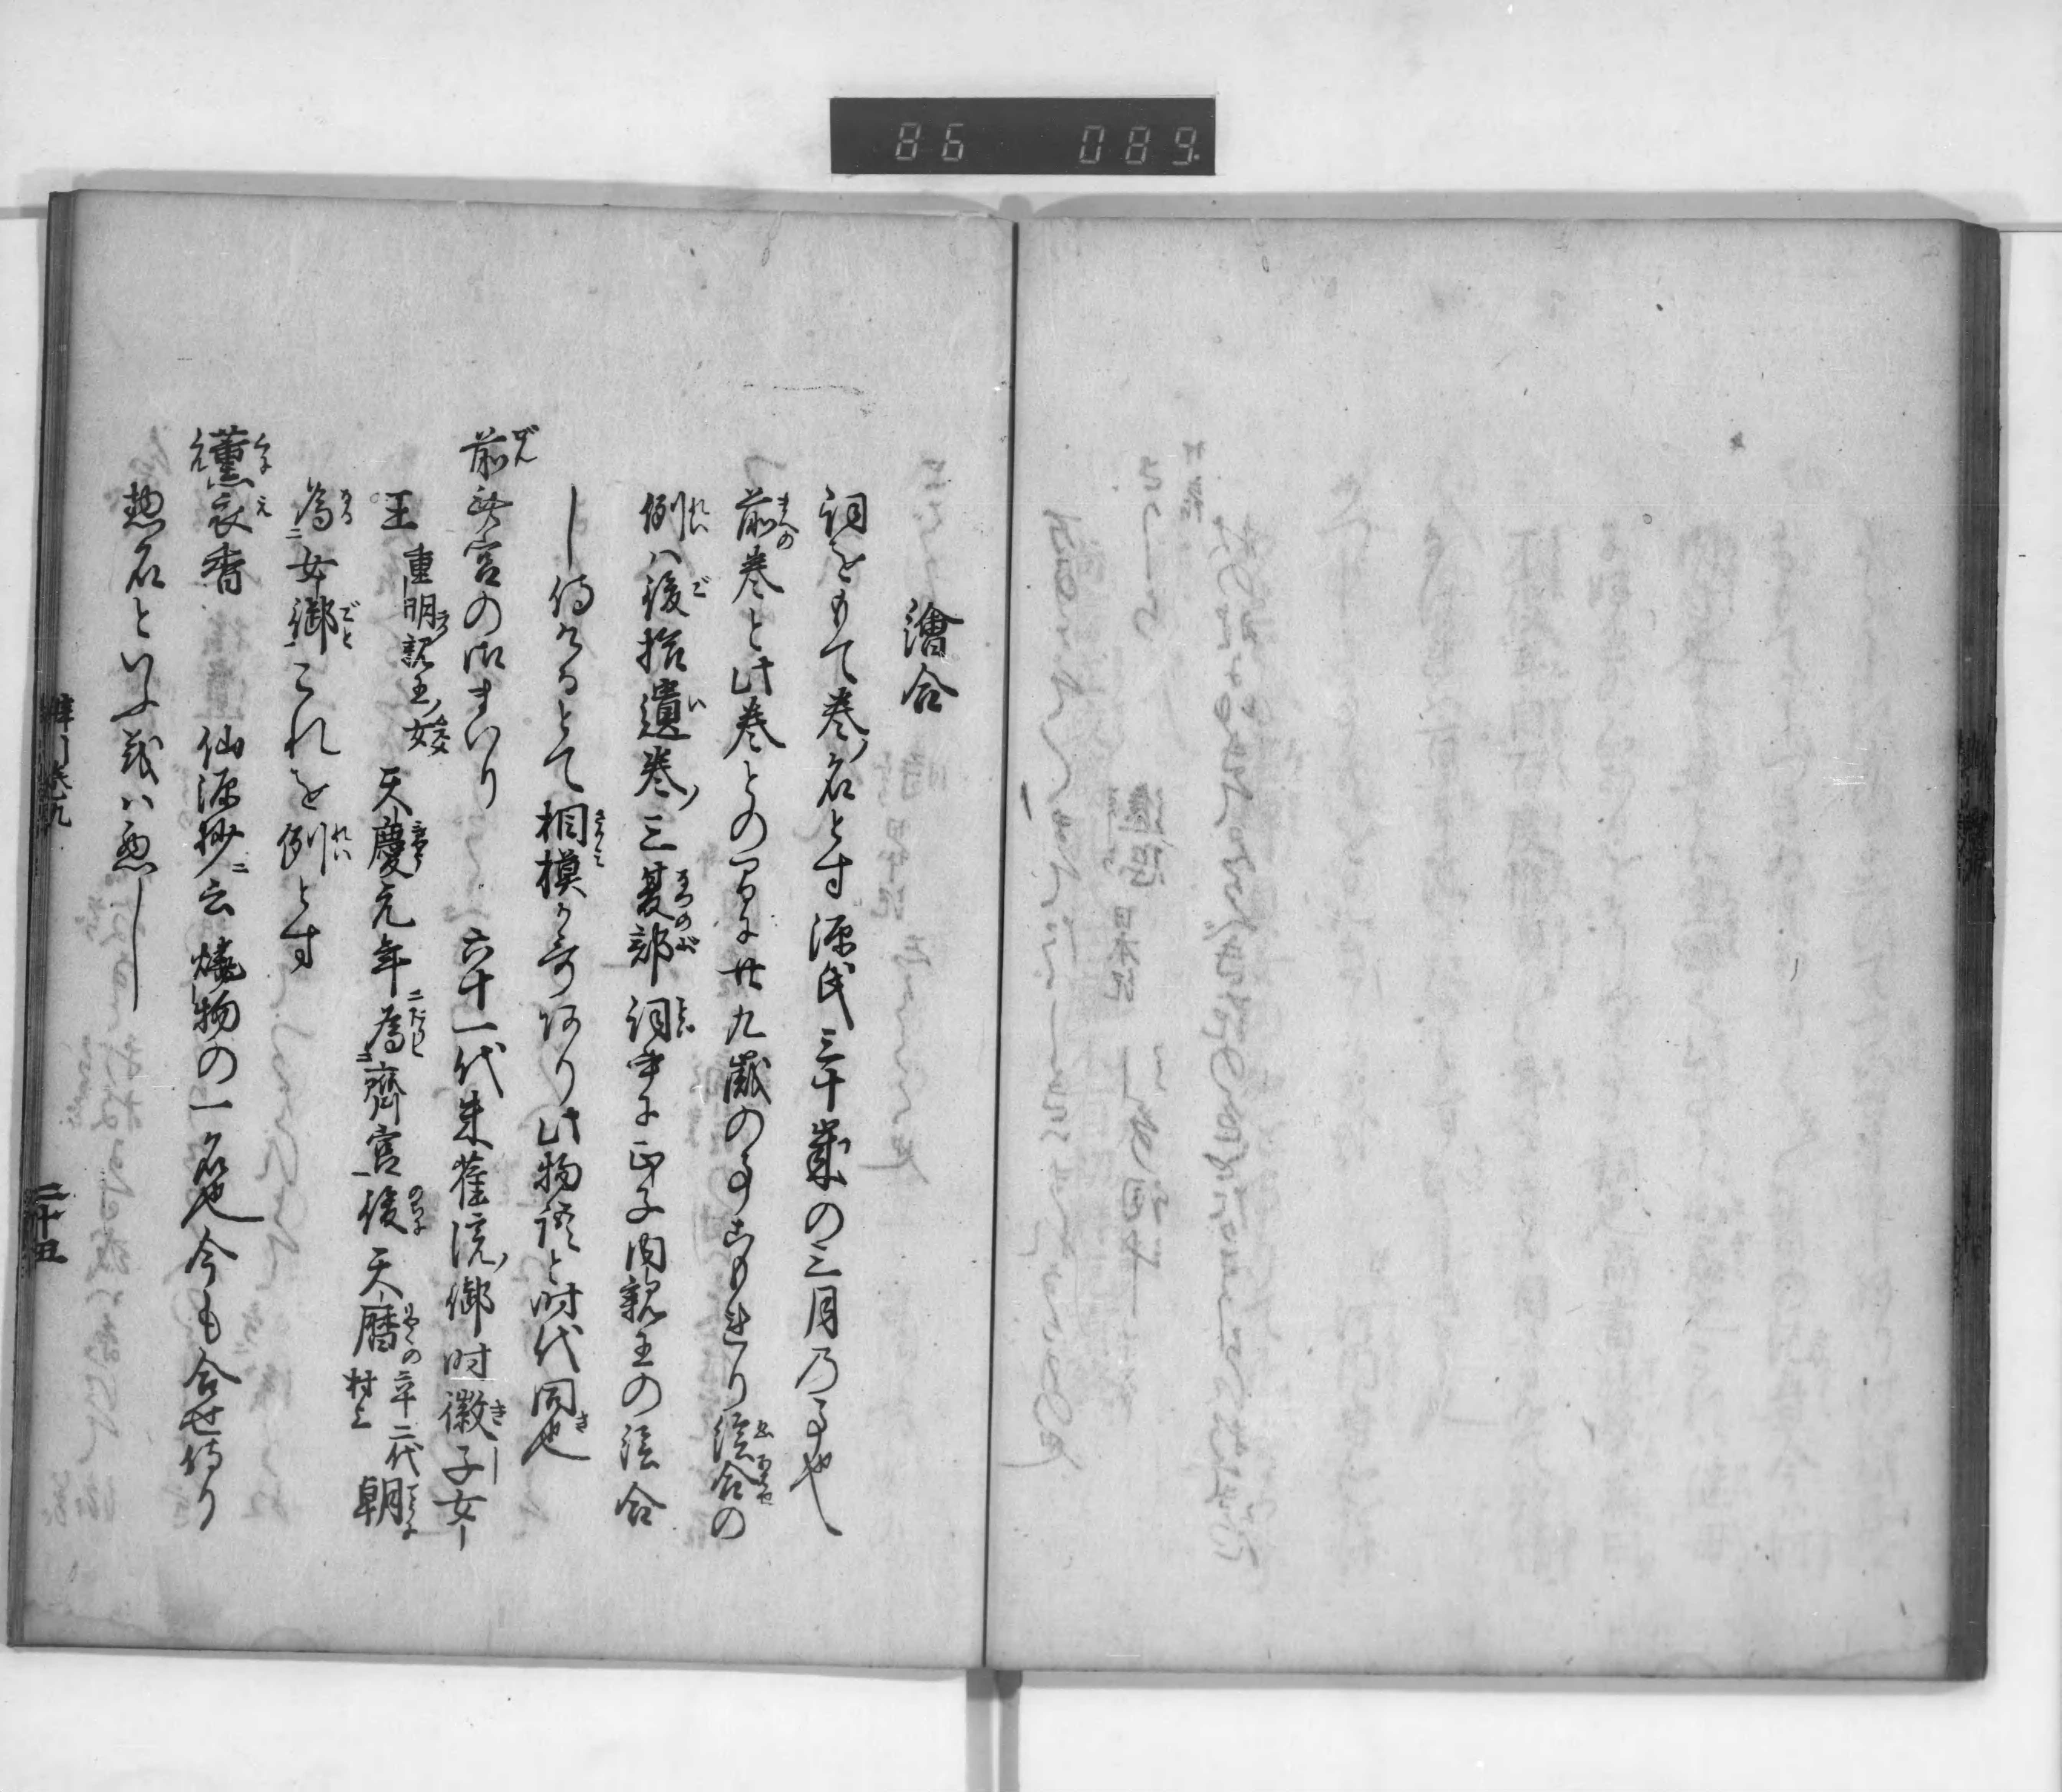 86 089
繪合
詞をもて巻ノ名とす源氏三十歳の三月乃事也
前巻と此巻との間に廿九歳の事こもれり絵合の
例ハ後拾遺巻ノ三夏部詞書に正子内親王の絵合
し侍けるとて相模か哥あり此物語と時代同也
前斎宮の御まいり 六十一代朱雀院ノ御時徽子女
王 重明親王ノ女 天慶元年為斎宮後天暦 六十二代村上 朝
為女御これを例とす
薫衣香 仙源抄ニ云焼物の一名也今も合せ侍り
惣名といふ義ハ悪し
二十五